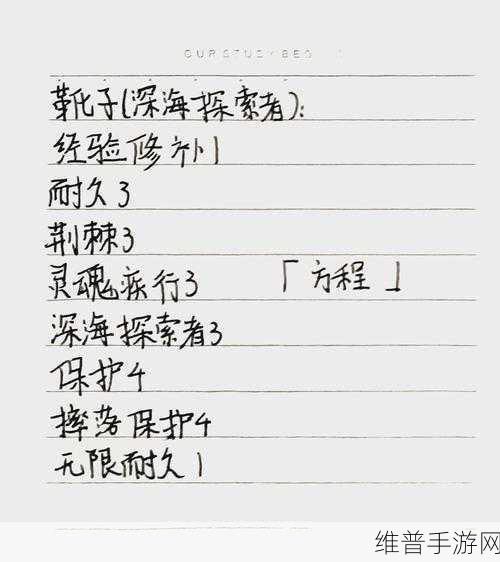 靴子(深海探索者):
经验修补1
耐久3
荆棘3
灵魂疾行3 「方程」
深海探索者3
保护4
摔落保护4
无限耐久1
维普手游网